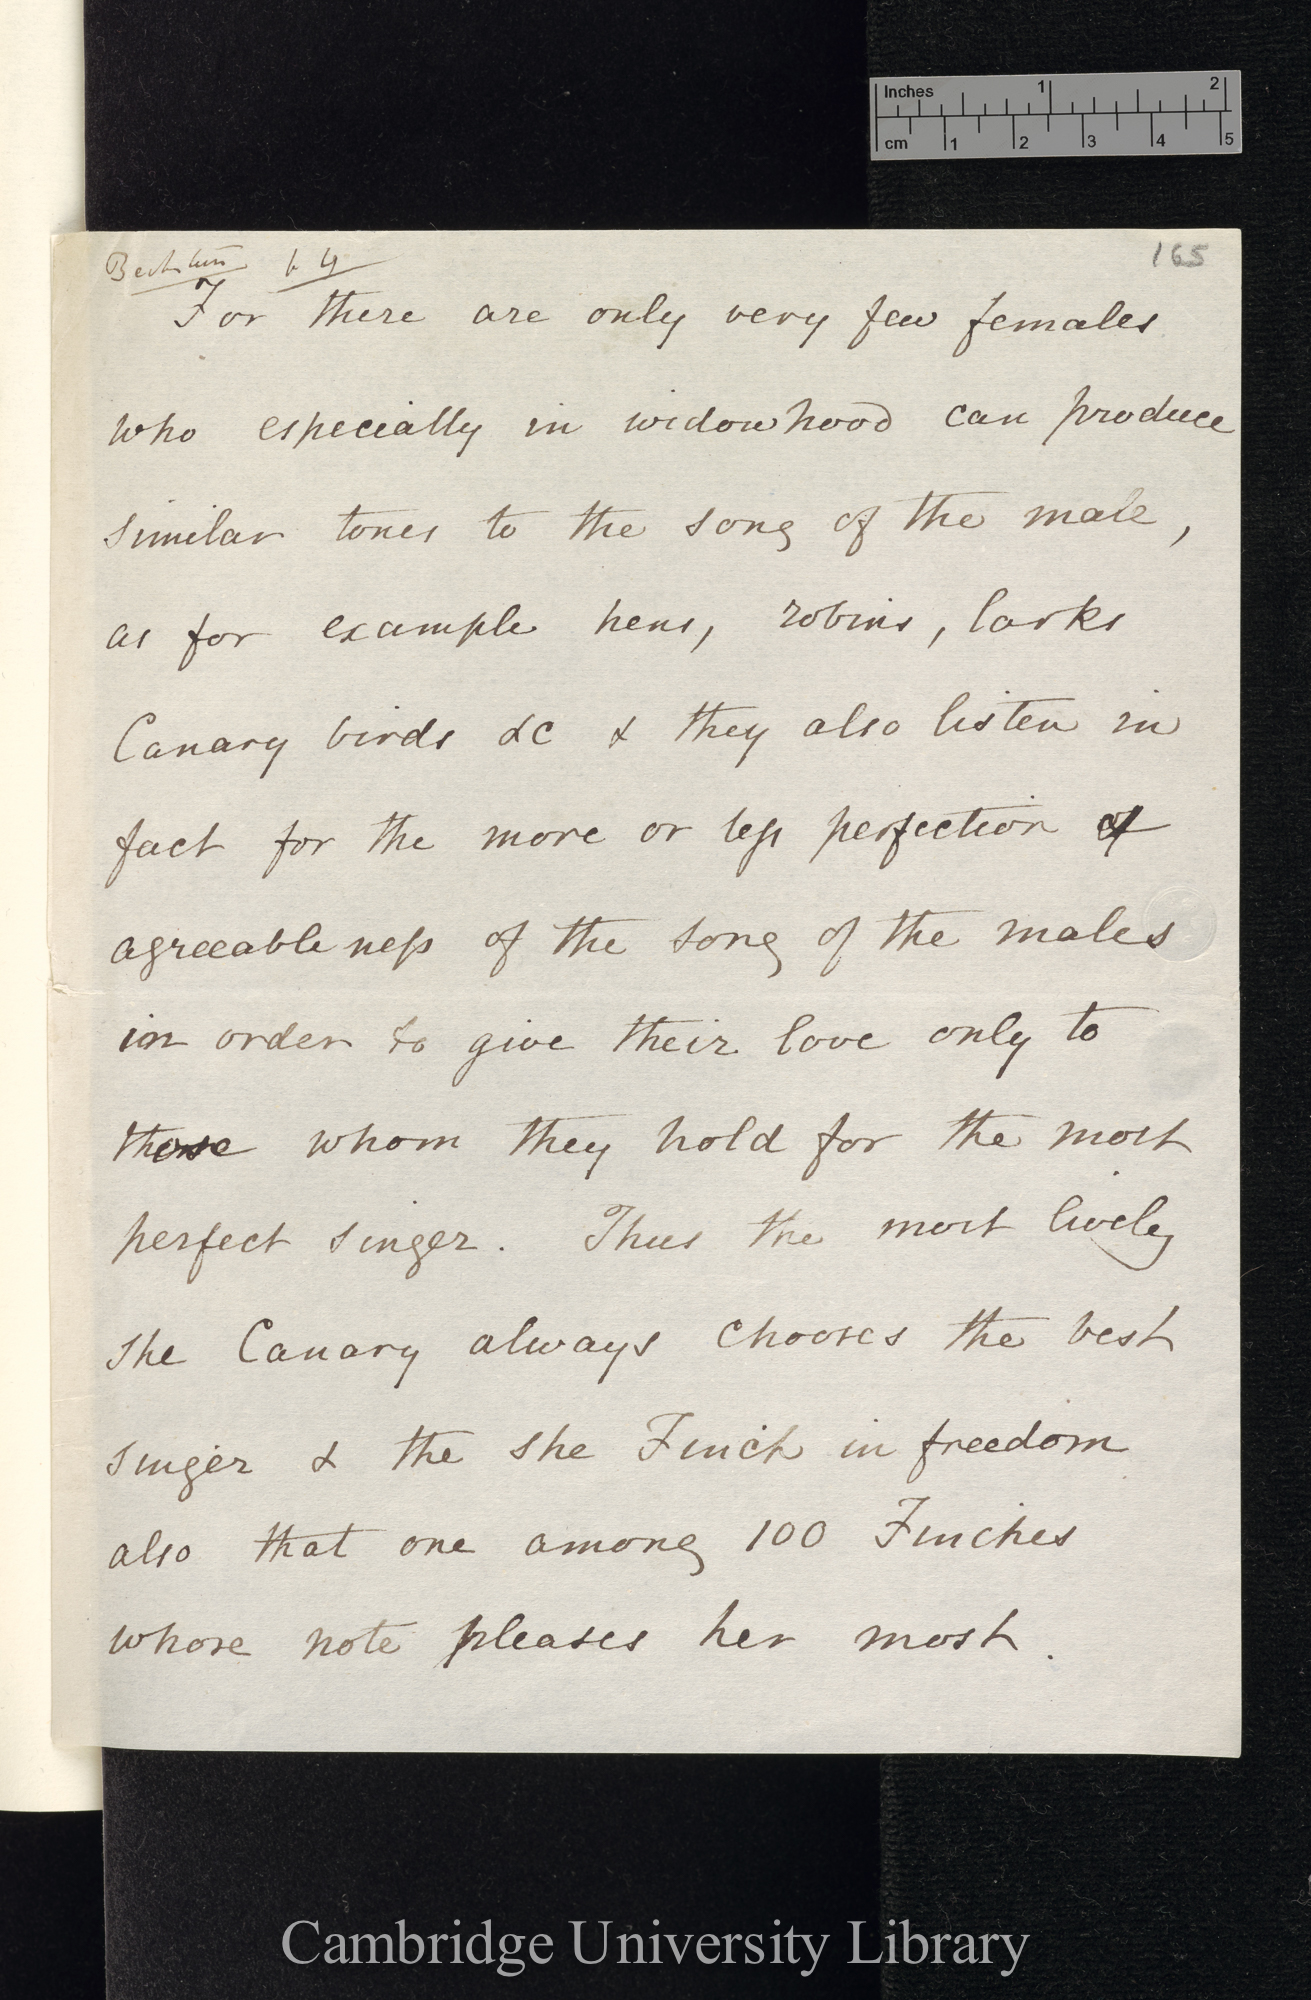 Inches 1 2
cm 1 2 3 4 5
165
Bechstein
For there are only very few females
who especially in widowhood can produce
similar tones to the song of the male,
as for example hens, robins, larks
Canary birds &c & they also listen in
fact for the more or less perfection of
agreeableness of the song of the males
in order to give their love only to
those whom they hold for the most
perfect singer. Thus the most lively
she Canary always chooses the best
singer & the she Finch in freedom
also that one among 100 Finches
whose note pleases her most.
Cambridge University Library